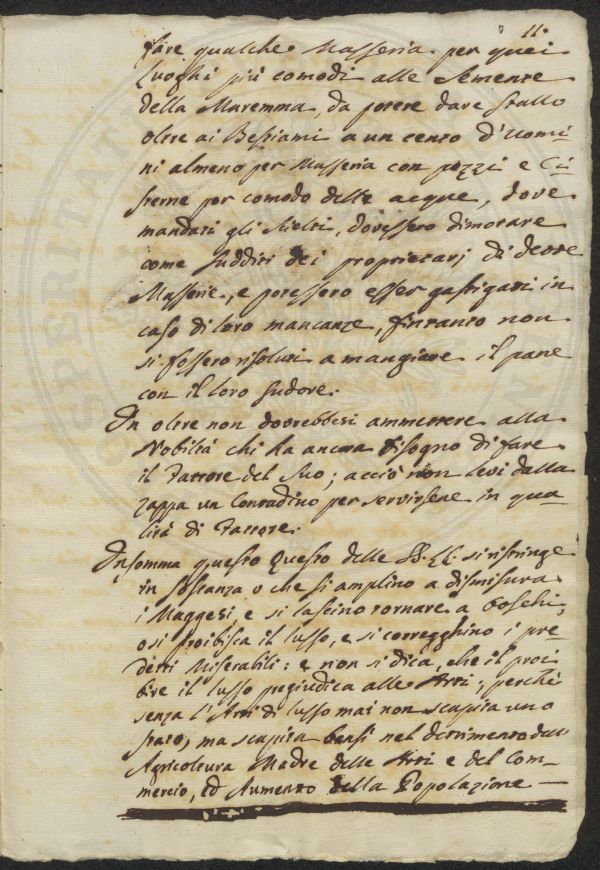 11.
fare qualche Masseria per quei
Luoghi più comodi alle Semente
della Maremma, da potere dare Stallo
oltre ai Bestiami a un cento d'Uomi=
ni almeno per Masseria con pozzi e Ci=
sterne per comodo delle acque, dove
mandati gli Scelti, dovessero dimorare
come Sudditi dei proprietarj di dette
Masserie, e potessero esser gastigati in
caso di loro mancanze, fintanto non
si fossero risoluti a mangiare il pane
con il loro Sudore.
In oltre non dovrebbesi ammettere alla
Nobiltà chi ha ancora bisogno di fare
il Fattore del Suo; acciò non levi dalla
zappa un Contadino per servirsene in qua=
lità di Fattore.
Insomma questo Questo delle SS. LL. si ristringe
in sostanza o che si amplino a dismisura
i Maggesi, e si lascino tornare a boschi,
o si proibisca il lusso, e si corregghino i pre=
detti Miserabili: e non si dica, che il proi
bire il lusso pregiudica alle Arti; perché
senza l'Arti di lusso mai non scapita uno
stato, ma scapita bensì nel detrimento dell'
Agricoltura Madre delle Arti e del Com=
mercio, ed Aumento della Popolazione —